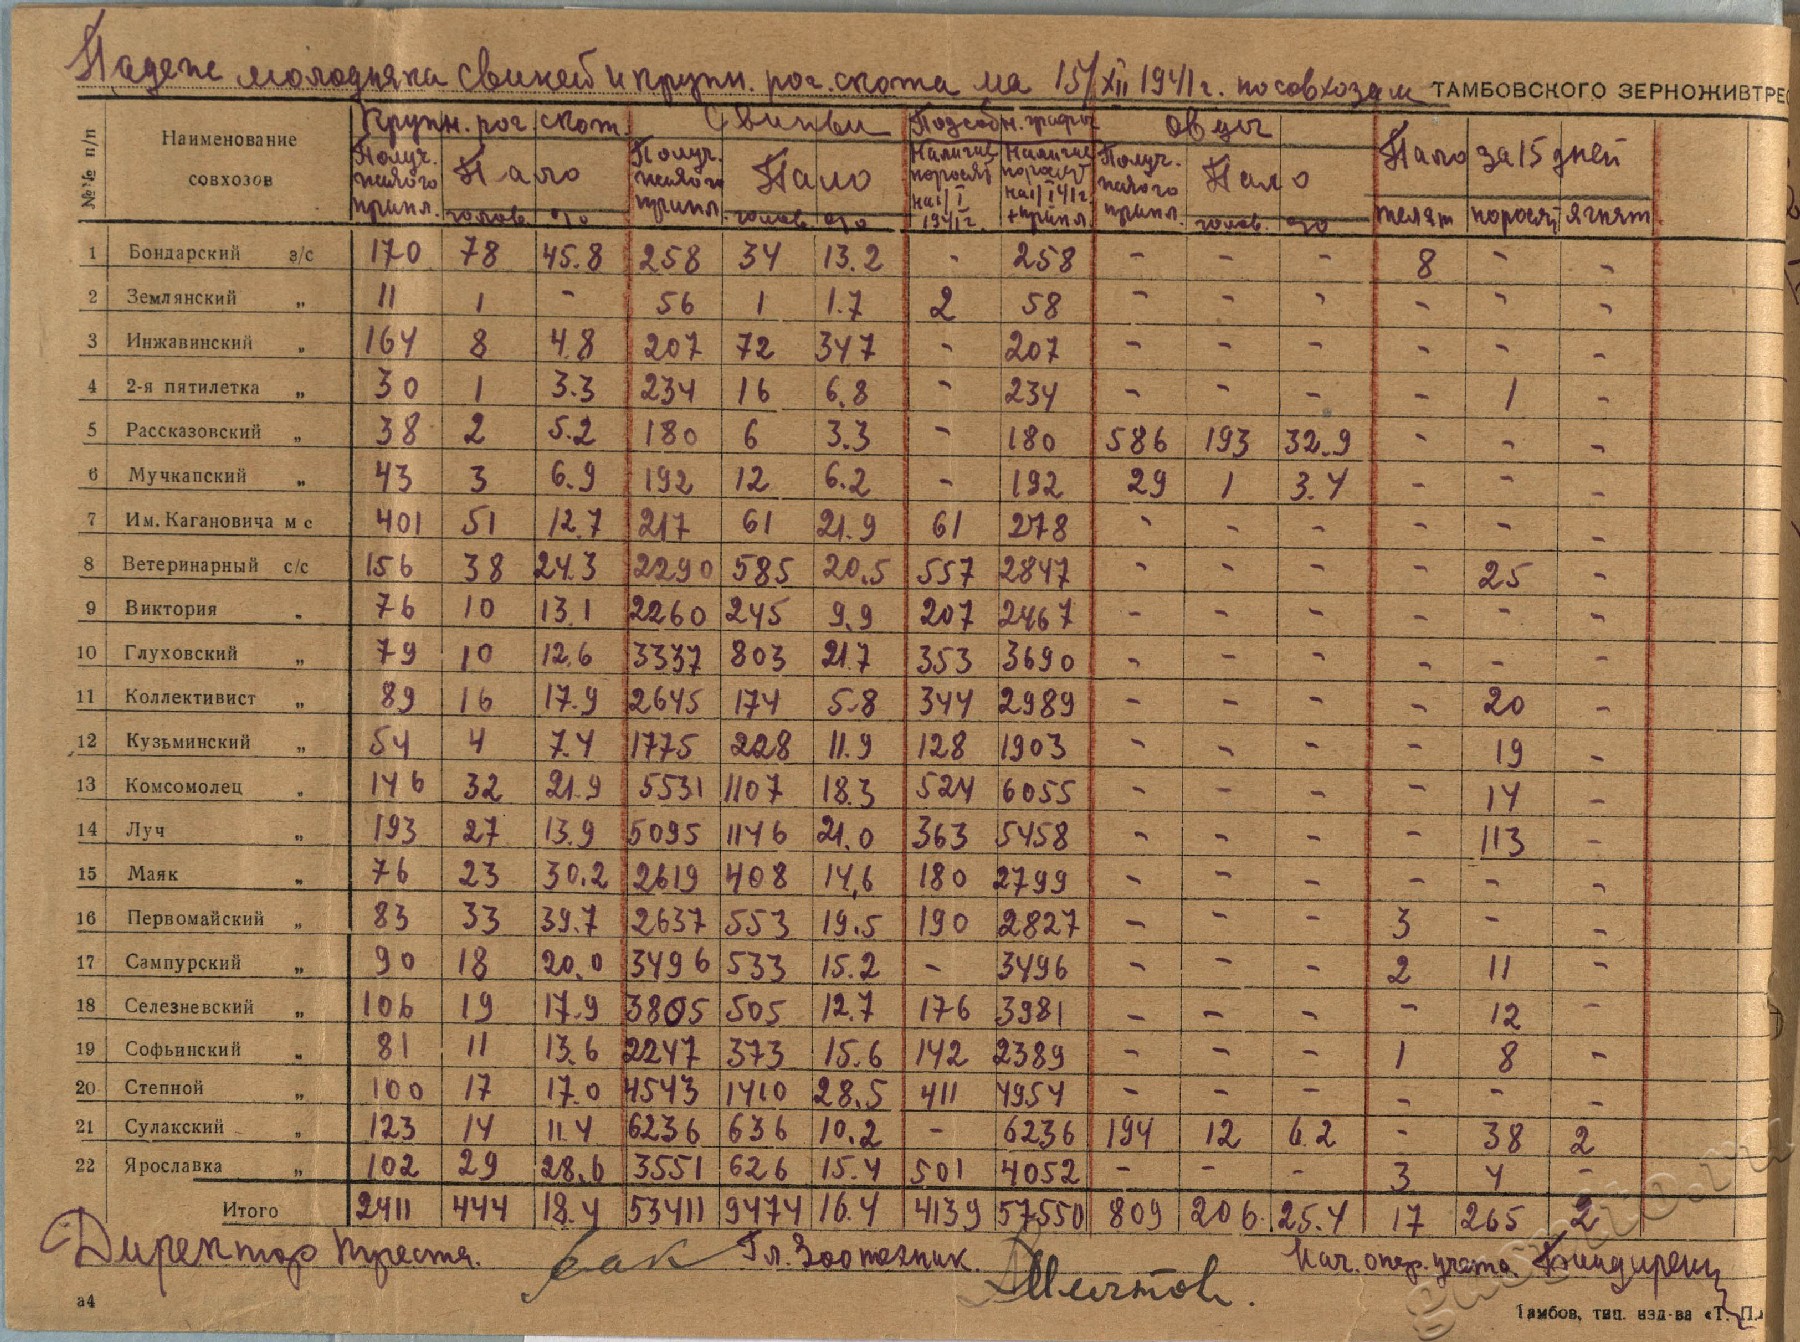 Падеж молодняка свиней и крупн. рог. скота на 15/XII 1941 г. по совхозам ТАМБОВСКОГО ЗЕРНОЖИВТРЕС
№№ п/п Наименование совхозов Крупн. рог. скот. Свиньи Подсобн. графы Овцы Пало за 15 дней
Получ. живого припл. Пало Получ. живого припл. Пало Наличие поросят на 1/I 1941 г. Наличие поросят на 1/I 41 г. + припл. Получ. живого припл. Пало
голов. % голов. % голов. % телят поросят ягнят
1 Бондарский з/с 170 78 45.8 258 34 13.2 - 258 - - - 8 - -
2 Землянский „ 11 1 - 56 1 1.7 2 58 - - - - - -
3 Инжавинский „ 164 8 4.8 207 72 347 - 207 - - - - - -
4 2-я пятилетка „ 30 1 3.3 234 16 6.8 - 234 - - - - 1 -
5 Рассказовский „ 38 2 5.2 180 6 3.3 - 180 586 193 32.9 - - -
6 Мучкапский „ 43 3 6.9 192 12 6.2 - 192 29 1 3.4 - - -
7 Им. Кагановича м с 401 51 12.7 217 61 21.9 61 278 - - - - - -
8 Ветеринарный с/с 156 38 24.3 2290 585 20.5 557 2847 - - - - 25 -
9 Виктория „ 76 10 13.1 2260 245 9.9 207 2467 - - - - - -
10 Глуховский „ 79 10 12.6 3337 803 21.7 353 3690 - - - - - -
11 Коллективист „ 89 16 17.9 2645 174 5.8 344 2989 - - - - 20 -
12 Кузьминский „ 54 4 7.4 1775 228 11.9 128 1903 - - - - 19 -
13 Комсомолец „ 146 32 21.9 5531 1107 18.3 524 6055 - - - - 14 -
14 Луч „ 193 27 13.9 5095 1146 21.0 363 5458 - - - - 113 -
15 Маяк „ 76 23 30.2 2619 408 14,6 180 2799 - - - - - -
16 Первомайский „ 83 33 39.7 2637 553 19.5 190 2827 - - - 3 - -
17 Сампурский „ 90 18 20.0 3496 533 15.2 - 3496 - - - 2 11 -
18 Селезневский „ 106 19 17.9 3805 505 12.7 176 3981 - - - - 12 -
19 Софьинский „ 81 11 13.6 2247 373 15.6 142 2389 - - - 1 8 -
20 Степной „ 100 17 17.0 4543 1410 28.5 411 4954 - - - - - -
21 Сулакский „ 123 14 11.4 6236 636 10.2 - 6236 194 12 6.2 - 38 2
22 Ярославка „ 102 29 28.6 3551 626 15.4 501 4052 - - - 3 4 -
Итого 2411 444 18.4 53411 9474 16.4 4139 57550 809 206 25.4 17 265 2
Директор треста. Гл. Зоотехник. Нач. опер. учета
а4 Тамбов, тип. изд-ва «Т. П.»